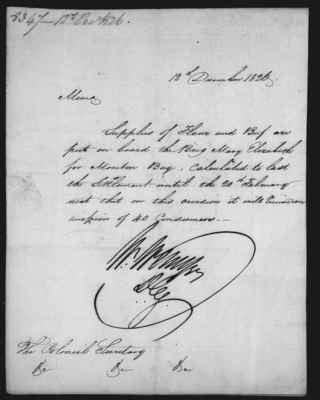 12th December 1826
Memo
Supplies of Flour and Beef are
put on board the Brig Mary Elizabeth
for Moreton Bay. Calculated to last
the Settlement until the 20th February
next
this occasion it will
of 40 Condemned
The Colonial Secretary
&c &c &c